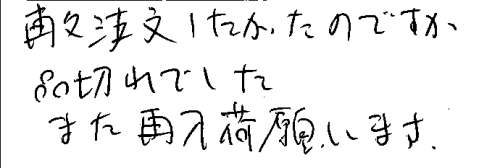 再文注文したかったのですが
品切れでした
また再入荷願います.